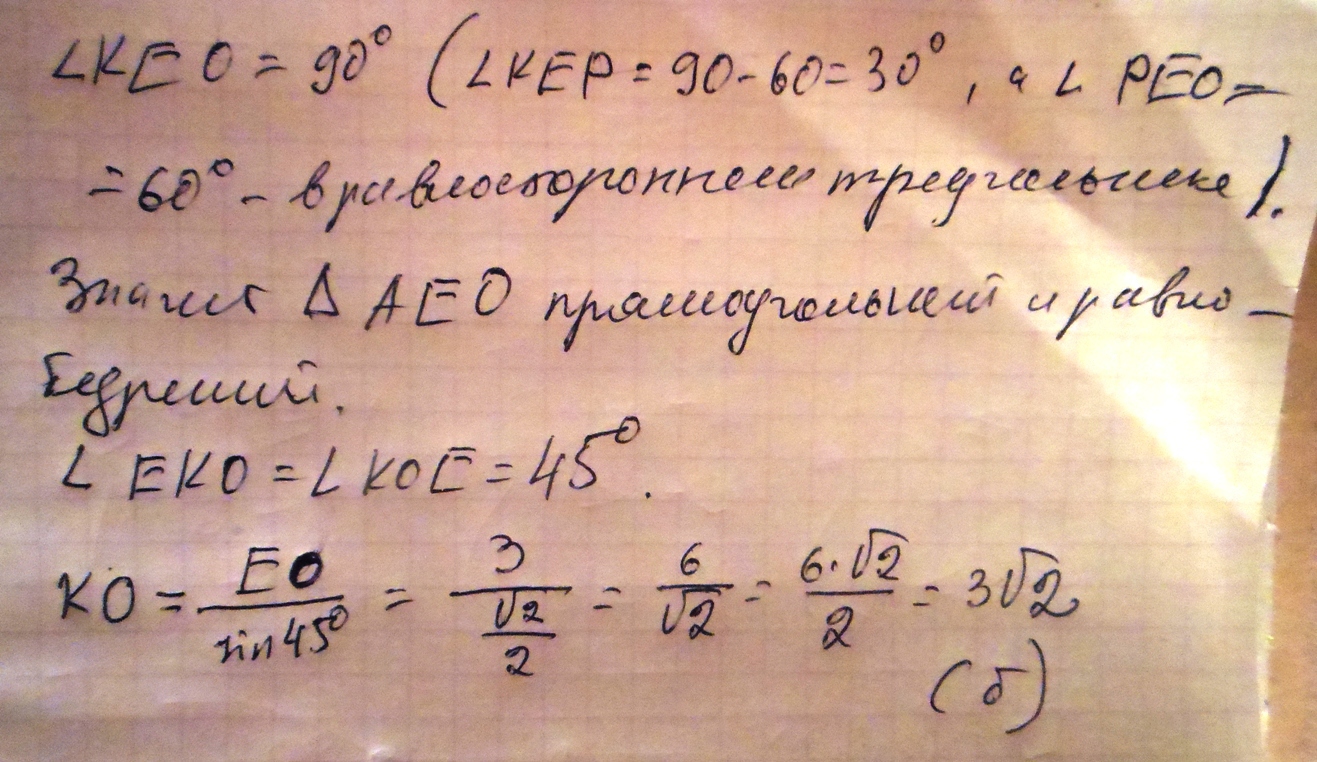 ∠KEO = 90° (∠KEP = 90-60=30°, а ∠ PEO=
=60° - в равностороннем треугольнике).
Значит Δ AEO прямоугольный и равно-
бедренный.
∠ EKO = ∠ KOE = 45°.
KO = EO/sin45° = 3/(√2/2) = 6/√2 = 6·√2/2 = 3√2
(б)